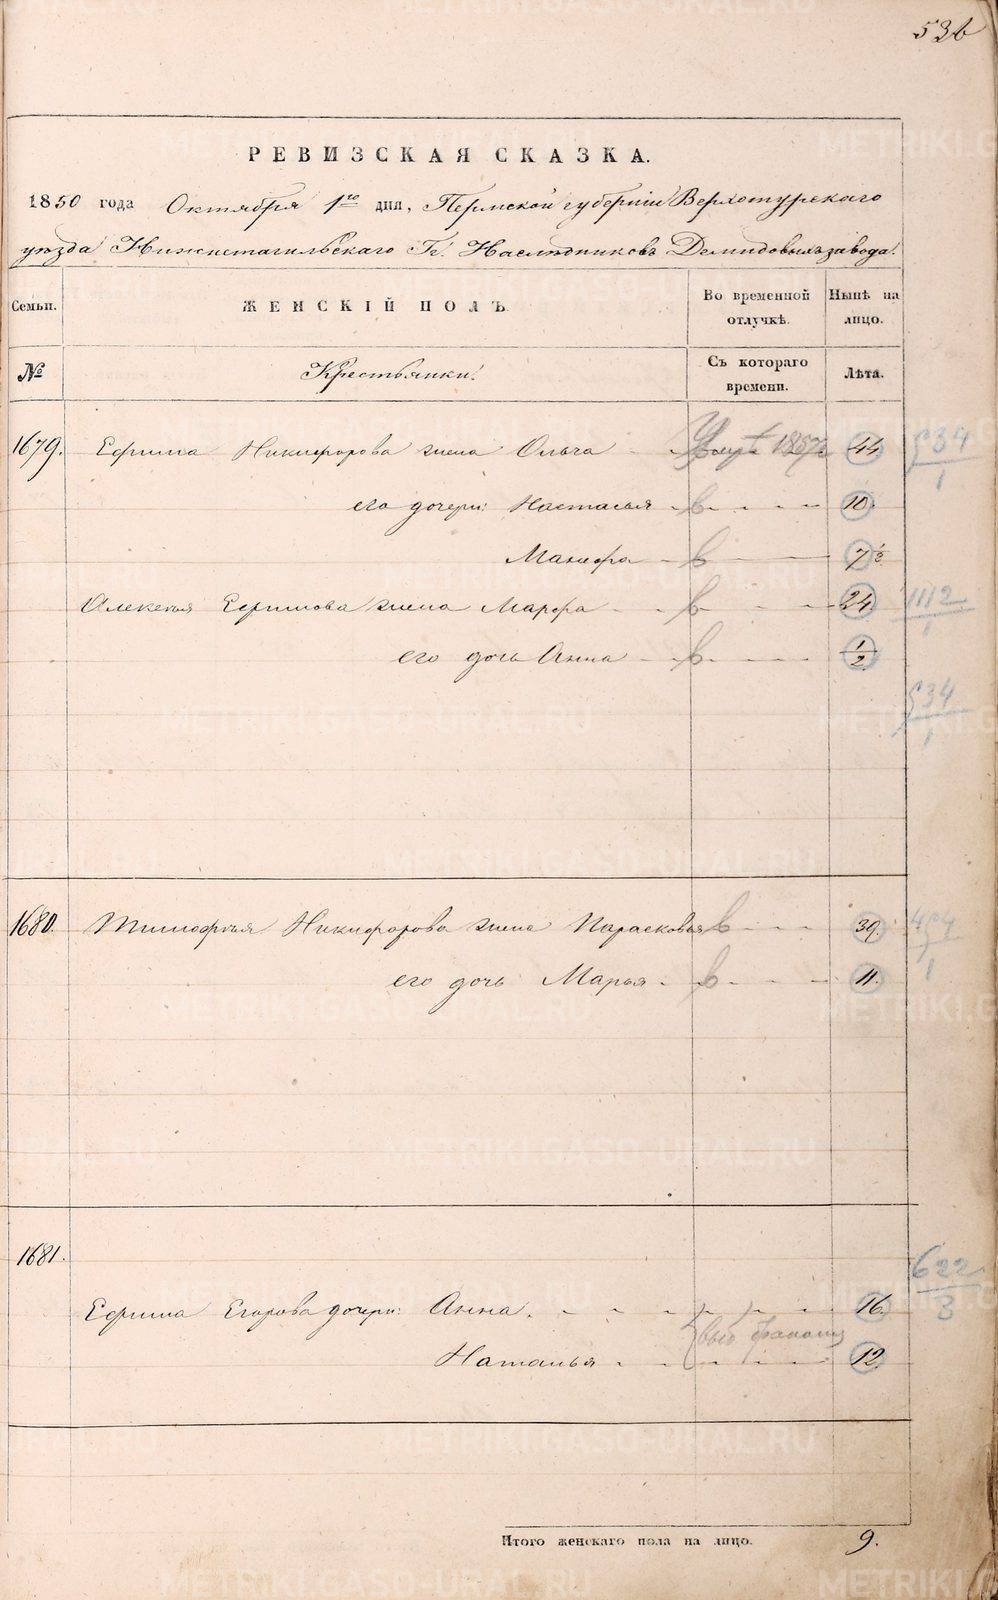 536
РЕВИЗСКАЯ СКАЗКА.
1850 года Октября 1го дня, Пермской губерніи Верхотурскаго
уѣзда Нижнетагильскаго Гг. Наслѣдниковъ Демидовыхъ завода.
Семьи. ЖЕНСКІЙ ПОЛЪ Во временной отлучкѣ. Нынѣ на лицо.
№ Крестьянки: Съ котораго времени. Лѣта.
1679. Ефима Никифорова жена Ольга 1857 44 534/1
его дочери: Настасья 10.
Манефа 7 1/2
Алексѣя Ефимова жена Марфа 24 1112/1
его дочь Анна 1/2
534/1
1680. Тимофѣя Никифорова жена Парасковья 39.
его дочь Марья 11.
1681. 622/3
Ефима Егорова дочери: Анна 16.
Наталья 12
Итого женскаго пола на лицо. 9.
METRIKI.GASO-URAL.RU